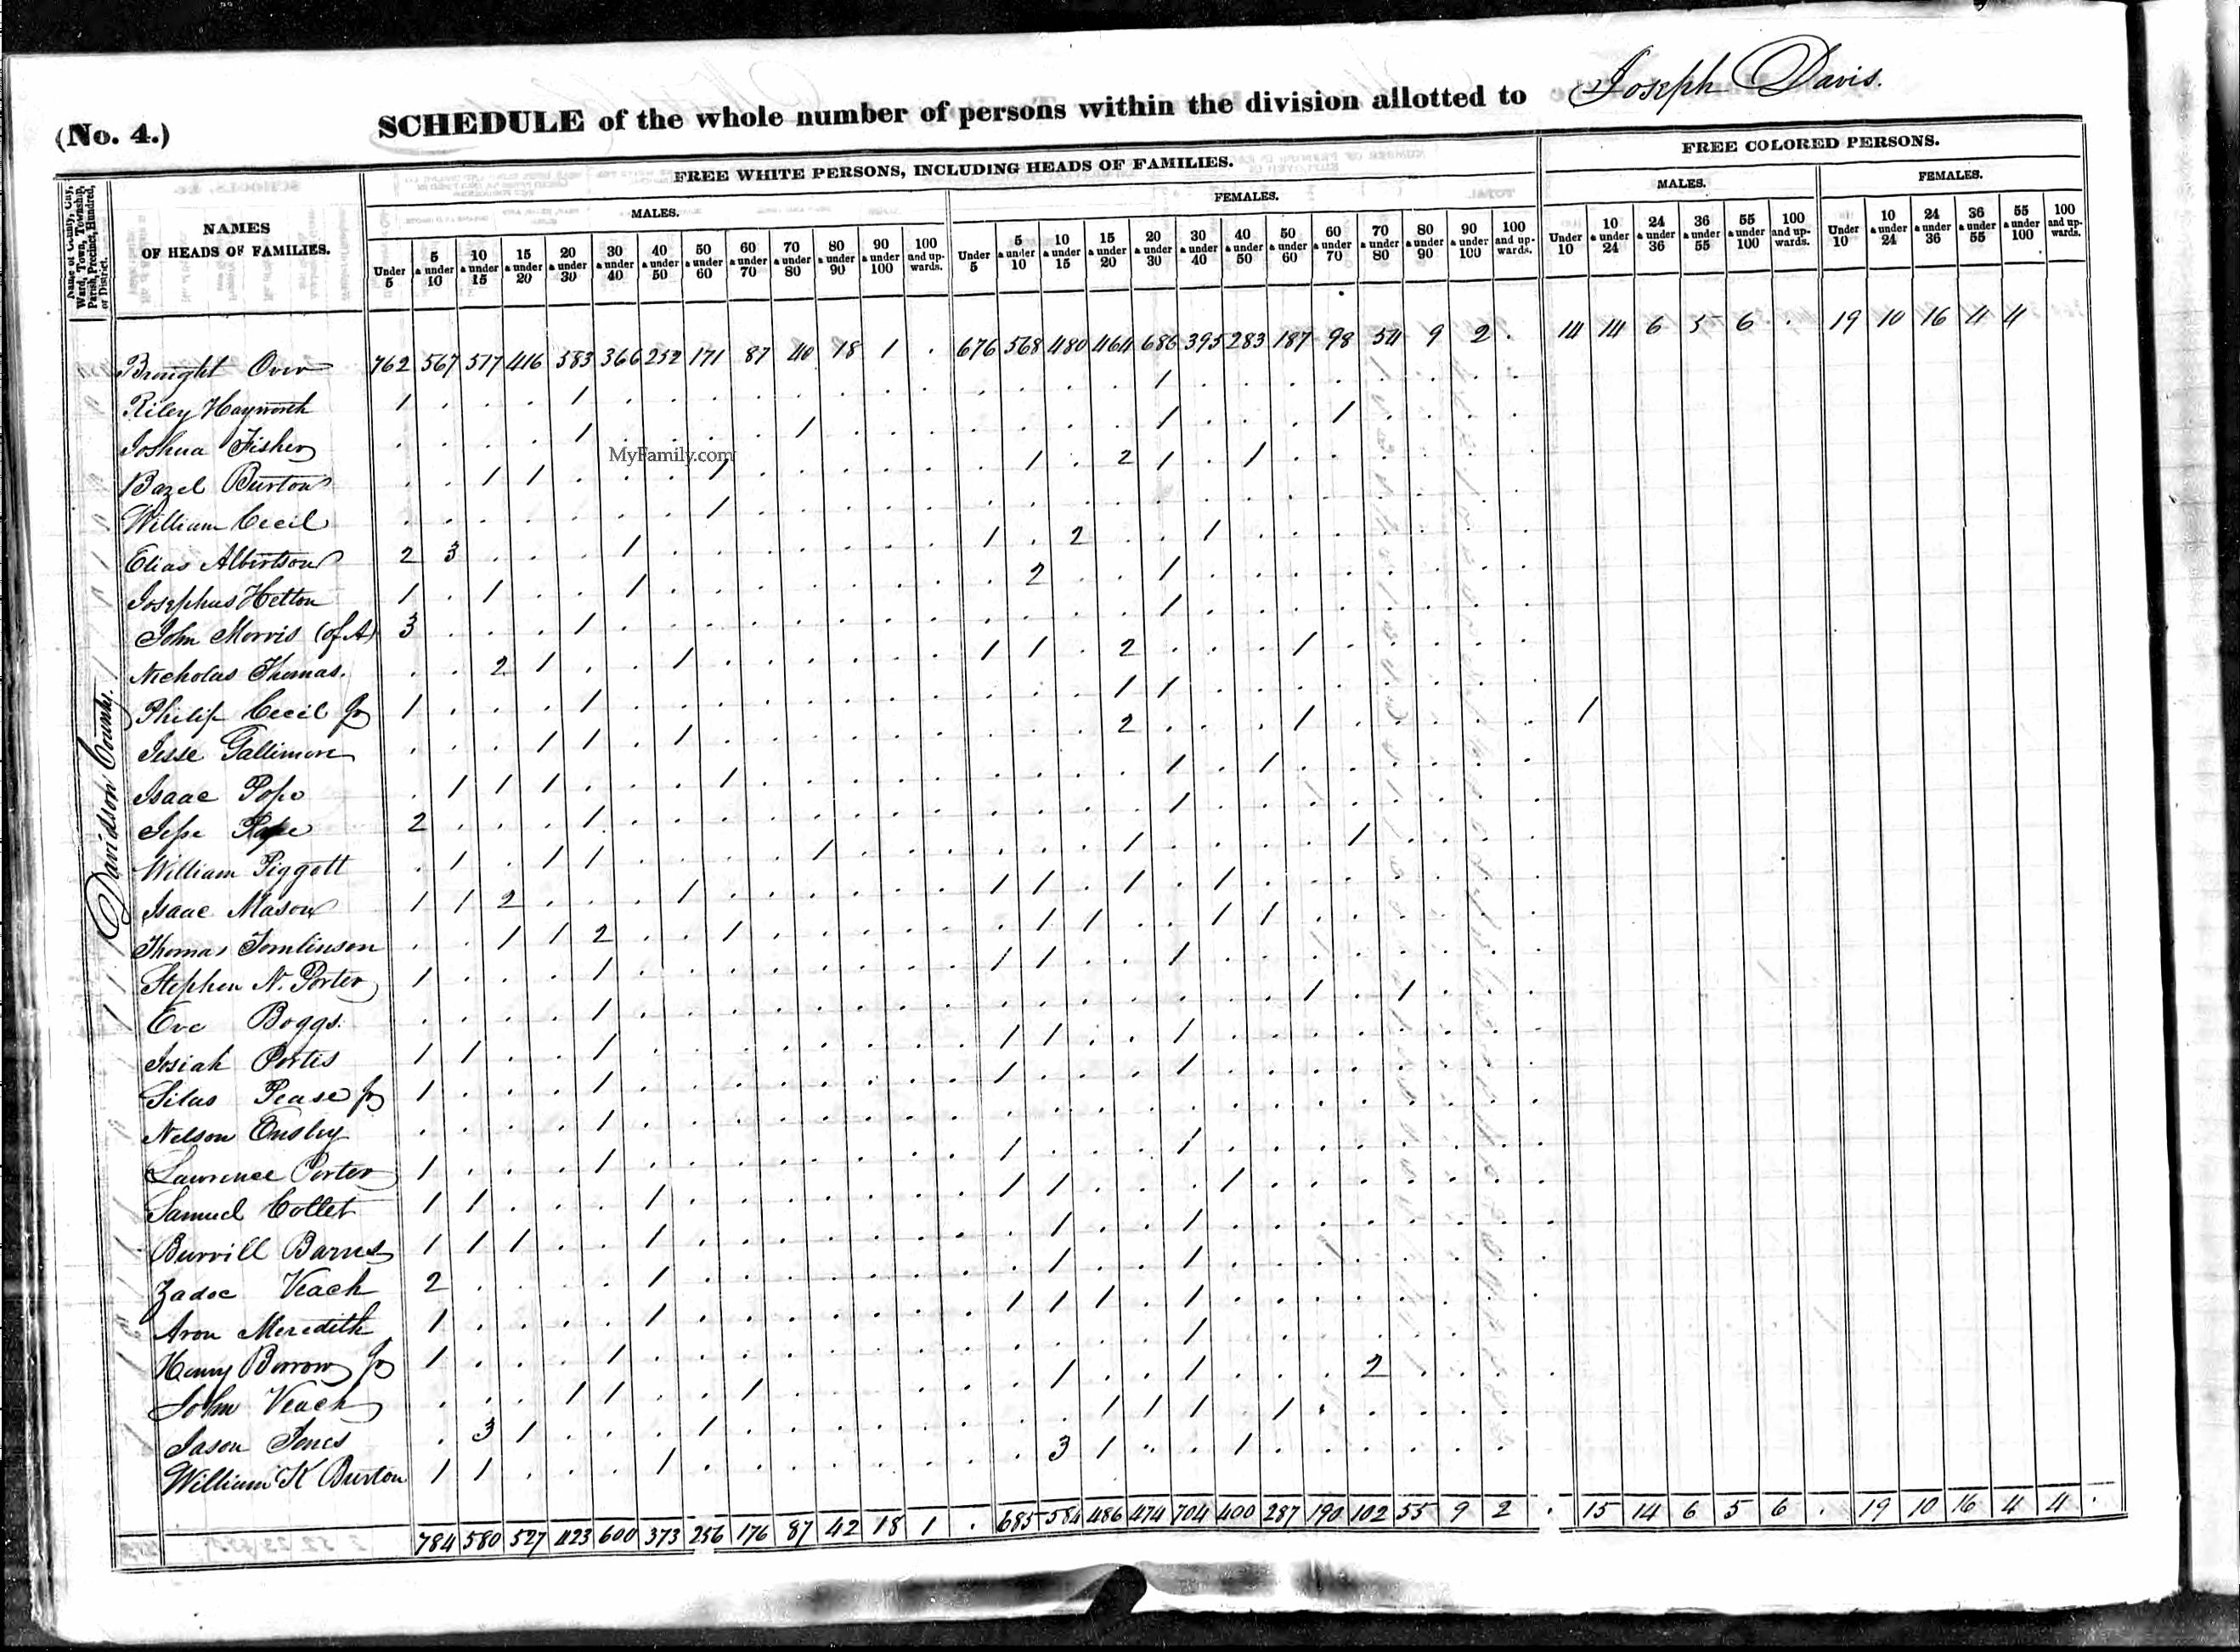 (No. 4.) SCHEDULE of the whole number of persons within the division allotted to Joseph Davis.
FREE WHITE PERSONS, INCLUDING HEADS OF FAMILIES. FREE COLORED PERSONS.
MALES. FEMALES. MALES. FEMALES.
Name of County, City, Ward, Town, Township, Parish, Precinct, Hundred, or District.
NAMES OF HEADS OF FAMILIES.
Under 5 | 5 & under 10 | 10 & under 15 | 15 & under 20 | 20 & under 30 | 30 & under 40 | 40 & under 50 | 50 & under 60 | 60 & under 70 | 70 & under 80 | 80 & under 90 | 90 & under 100 | 100 and upwards. | Under 5 | 5 & under 10 | 10 & under 15 | 15 & under 20 | 20 & under 30 | 30 & under 40 | 40 & under 50 | 50 & under 60 | 60 & under 70 | 70 & under 80 | 80 & under 90 | 90 & under 100 | 100 and upwards. | Under 10 | 10 & under 24 | 24 & under 36 | 36 & under 55 | 55 & under 100 | 100 and upwards. | Under 10 | 10 & under 24 | 24 & under 36 | 36 & under 55 | 55 & under 100 | 100 and upwards.
Davidson County.
Brought Over 762 567 517 416 583 366 252 171 87 40 18 1 . 676 568 480 464 686 395 283 187 98 54 9 2 . 14 14 6 5 6 . 19 10 16 4 4
Riley Hayworth 1 1 1
Joshua Fisher 1 1 1 1
MyFamily.com
Bazel Burton 1 1 1 1 2 1 1
William Cecil 1
Elias Albertson 2 3 1 1 2 1
Josephus Helton 1 1 1 2 1
John Morris (of A) 3 1 1
Nicholas Thomas. 2 1 1 1 1 2 1
Philip Cecil Jr 1 1 1 1
Jesse Gallimore 1 1 1 2 1 1
Isaac Pope 1 1 1 1 1 1
Jesse Pope 2 1 1
William Piggott 1 1 1 1 1 1
Isaac Mason 1 1 2 1 1 1 1 1
Thomas Tomlinson 1 1 2 1 1 1 1 1
Stephen N. Porter 1 1 1 1 1
Eve Boggs. 1 1 1
Josiah Portis 1 1 1 1 1 1
Silas Pease Jr 1 1 1 1
Nelson Ensley 1
Lawrence Porter 1 1 1 1
Samuel Collet 1 1 1 1 1 1
Burrill Barnes 1 1 1 1 1 1
Zadoc Veach 2 1 1 1
Aron Meredith 1 1 1 1 1 1
Henry Borrow Jr 1 1 1
John Veach 1 1 1 1 1 2
Jason Jones 3 1 1 1 1 1 1
William K Burton 1 1 1 3 1 1
784 580 527 423 600 373 256 176 87 42 18 1 . 685 584 486 474 704 400 287 190 102 55 9 2 . 15 14 6 5 6 . 19 10 16 4 4 .